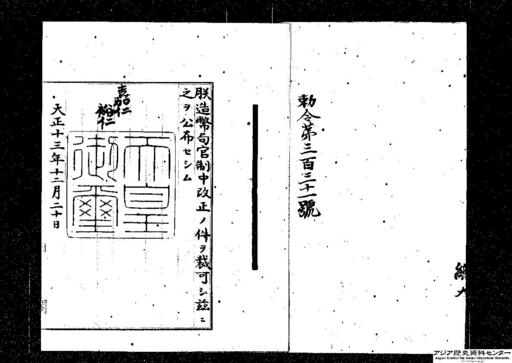 勅令第三百三十一號
朕造幣局官制中改正ノ件ヲ裁可シ茲ニ
之ヲ公布セシム
嘉仁
裕仁
天皇
御璽
大正十三年十二月二十日
アジア歴史資料センター
Japan Center for Asian Historical Records